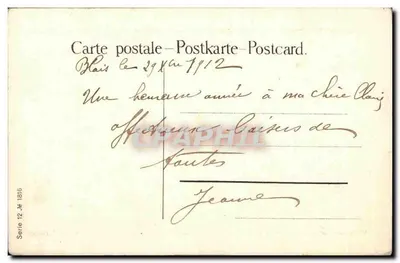 Carte postale – Postkarte – Postcard.
Blois le 29 Xbre 1912
Une heureuse année à ma chère
affectueux baisers de
toutes
Jeanne
Serie 12 № 1816
CPAPHIL